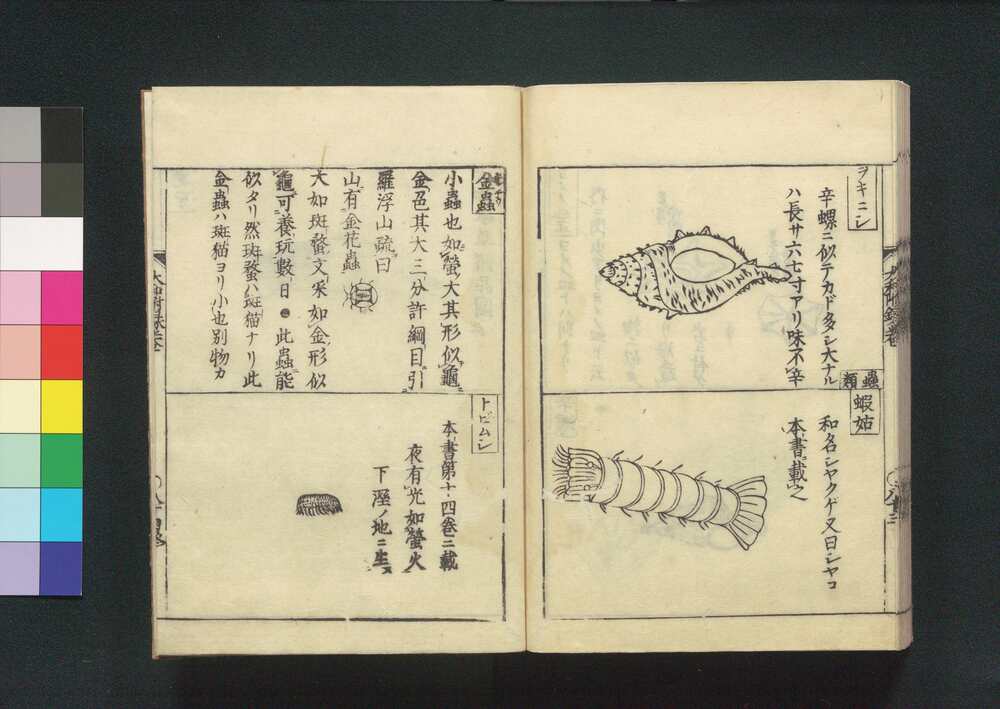 ヲキニシ
辛螺ニ似テカド多シ大ナル
ハ長サ六七寸アリ味不辛
蟲類
蝦蛄
和名シヤクゲ又曰シヤコ
本書載之
金蟲
小蟲也如螢大其形似龜
金色其大三分許綱目引
羅浮山疏曰
山有金花蟲
大如斑蝥文采如金形似
龜可養玩數日ニ此蟲能
似タリ然斑蝥ハ斑猫ナリ此
金蟲ハ斑猫ヨリ小也別物カ
トビムシ
本書第十四卷ニ載
夜有光如螢火
下溼ノ地ニ生ス